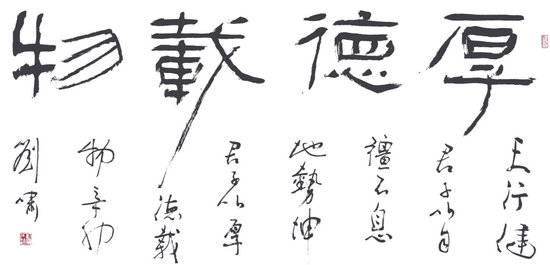 厚德載物
天行健
君子以自
彊不息
地勢坤
君子以厚
德載
物辛卯
劉嘯